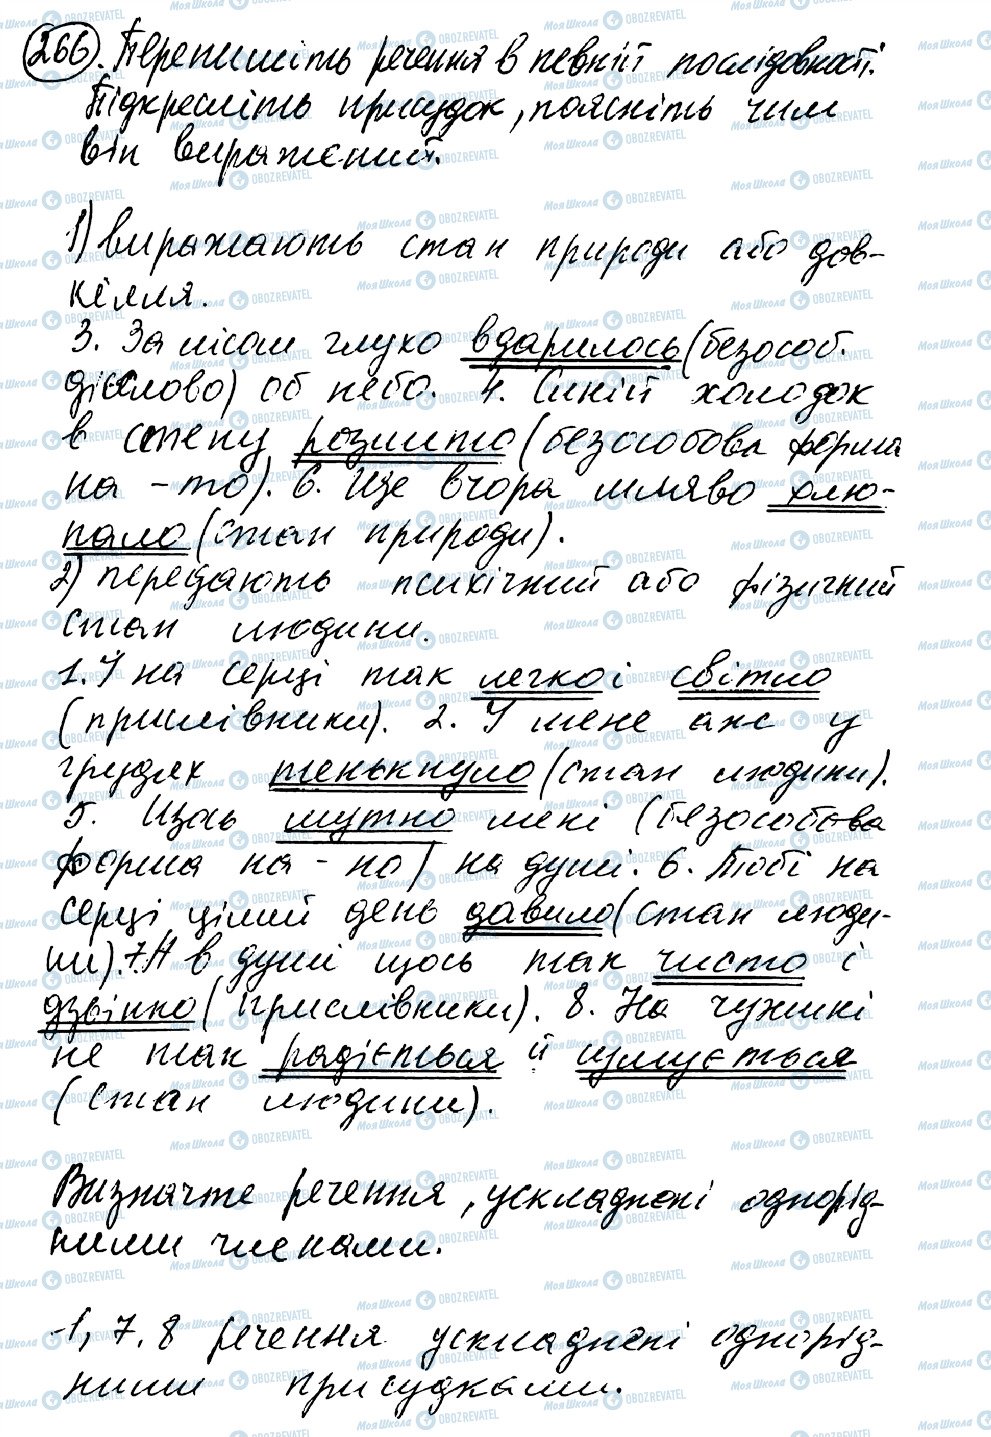 266. Перепишіть речення в певній послідовності.
Підкресліть присудок, поясніть чим
він виражений.
1) виражають стан природи або дов-
кілля.
3. За лісом глухо вдарилось (безособ.
дієслово) об небо. 4. Синій холодок
в степу розлито (безособова форма
на -то). 6. Ще вчора мляво хлю-
пало (стан природи).
2) передають психічний або фізичний
стан людини.
1. У на серці так легко і світло
(прислівники). 2. У мене аж у
грудях тенькнуло (стан людини).
5. Щось мутно мені (безособова
форма на - но) на душі. 6. Тобі на
серці цілий день давило (стан люди-
ни). 7. А в душі щось так чисто і
дзвінко (прислівники). 8. На чужині
не так радіється й сумується
(стан людини).
Визначте речення, ускладнені однорід-
ними членами.
-1, 7. 8 речення ускладнені однорід-
ними присудками.